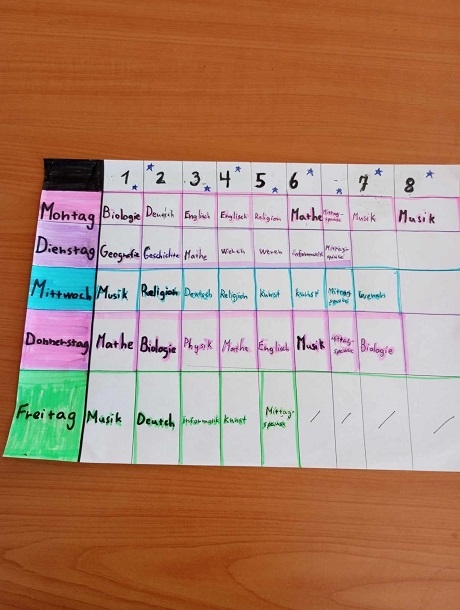 1 2 3 4 5 6 7 8
Montag Biologie Deutsch Englisch Englisch Religion Mathe Mittag- spause Musik Musik
Dienstag Geografie Geschichte Mathe Werken Werken informatik Mittags- pause
Mittwoch Musik Religion Deutsch Religion Kunst Kunst Mittag- spause
Donnerstag Mathe Biologie Physik Mathe Englisch Musik Mittag- spause Biologie
Freitag Musik Deutch informatik Kunst Mittag- spause / / / /